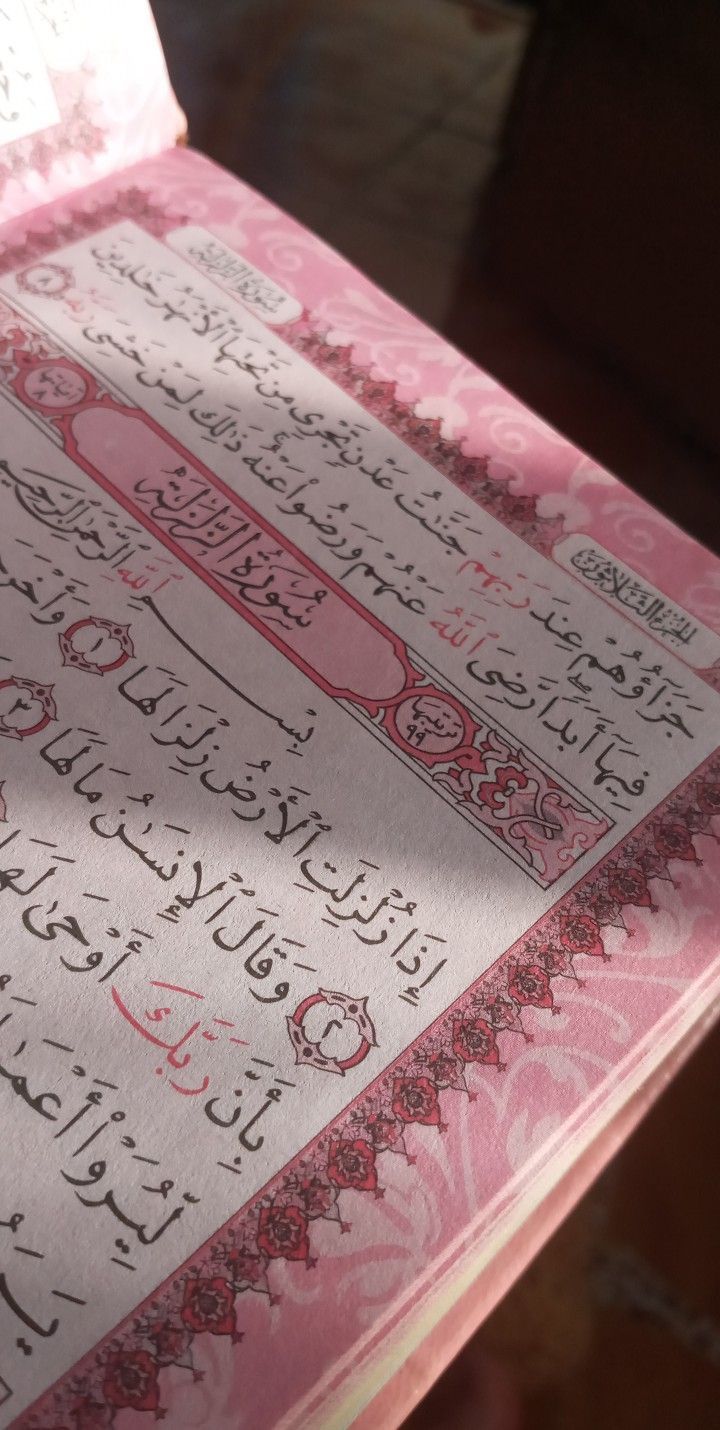 سُورَةُ الزَّلْزَلَةِ
الجزء الثلاثون
جَزَآؤُهُمْ عِندَ رَبِّهِمْ جَنَّٰتُ عَدْنٍ تَجْرِى مِن تَحْتِهَا ٱلْأَنْهَٰرُ خَٰلِدِينَ
فِيهَآ أَبَدًا رَّضِىَ ٱللَّهُ عَنْهُمْ وَرَضُوا۟ عَنْهُ ذَٰلِكَ لِمَنْ خَشِىَ رَبَّهُۥ ٨
ترتيبها ٩٩ سُورَةُ الزَّلْزَلَةِ آياتها ٨
بِسْمِ ٱللَّهِ ٱلرَّحْمَٰنِ ٱلرَّحِيمِ
إِذَا زُلْزِلَتِ ٱلْأَرْضُ زِلْزَالَهَا ١ وَأَخْرَجَ
٢ وَقَالَ ٱلْإِنسَٰنُ مَا لَهَا ٣
بِأَنَّ رَبَّكَ أَوْحَىٰ لَهَا
لِّيُرَوْا۟ أَعْمَٰلَ